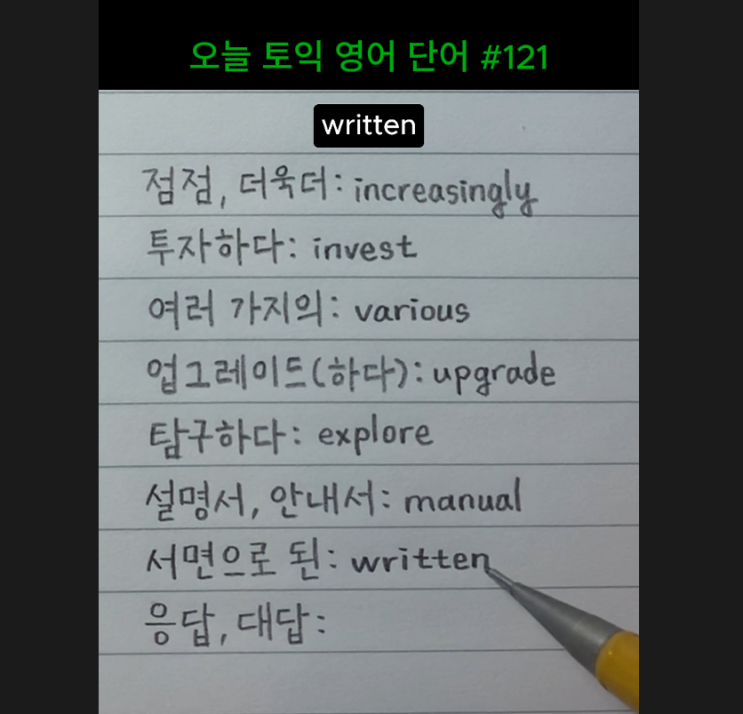 오늘 토익 영어 단어 #121
written
점점, 더욱더: increasingly
투자하다: invest
여러 가지의: various
업그레이드(하다): upgrade
탐구하다: explore
설명서, 안내서: manual
서면으로 된: written
응답, 대답: